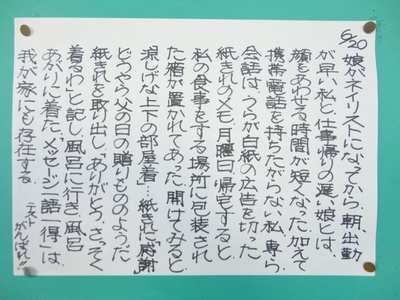 6/20 娘がネイリストになってから、朝、出勤
が早い私と仕事帰りの遅い娘とは、
顔をあわせる時間が短くなった。加えて
携帯電話を持ちたがらない私、専ら
会話は、うらが白紙の広告を切った
紙きれのメモ。月曜日、帰宅すると、
私の食事をする場所に包装され
た箱が置かれてあった。開けてみると、
涼しげな上下の部屋着…紙きれに「感謝」
どうやら父の日の贈りもののようだ
紙きれを取り出し「ありがとう、さっそく
着るわ」と記し風呂に行き、風呂
あがりに着た。メッセージ一語一得」は、
我が家にも存在する。
テスト
がんばれ!!